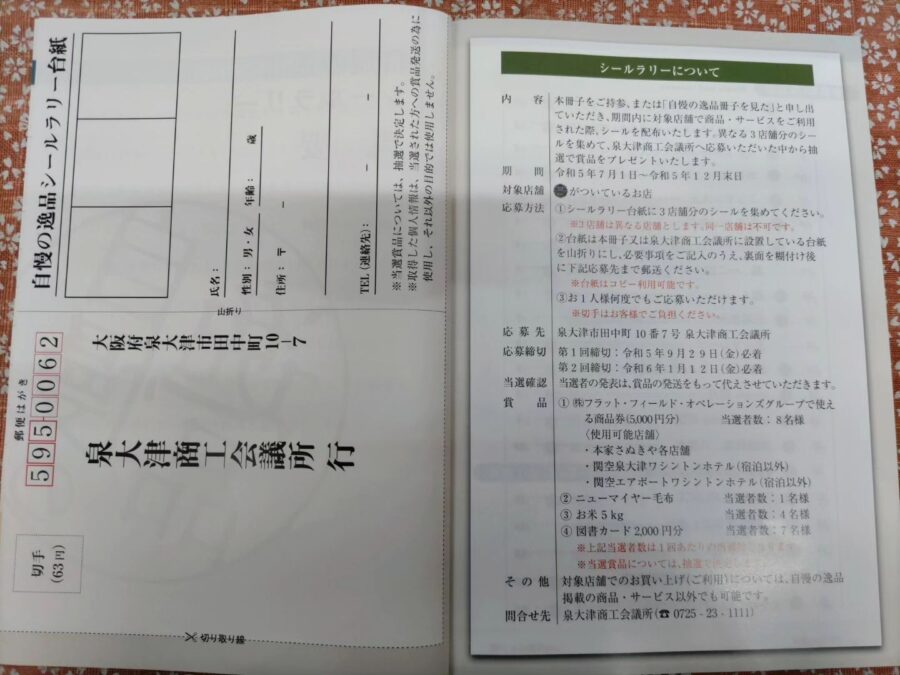 自慢の逸品シールラリー台紙
氏名：
性別：男・女　年齢：　　歳
住所：〒　　－
TEL（連絡先）：　　－　　－
※当選賞品については、抽選で決定します。
※取得した個人情報は、当選された方への賞品発送の為に
使用し、それ以外の目的では使用しません。
山折り
郵便はがき
5950062
大阪府泉大津市田中町10－7
泉大津商工会議所 行
切手
（63円）
切り取り線
シールラリーについて
内容 本冊子をご持参、または「自慢の逸品冊子を見た」と申し出
ていただき、期間内に対象店舗で商品・サービスをご利用
された際、シールを配布いたします。異なる3店舗分のシー
ルを集めて、泉大津商工会議所へ応募いただいた中から抽
選で賞品をプレゼントいたします。
期間 令和5年7月1日～令和5年12月末日
対象店舗 がついているお店
応募方法 ①シールラリー台紙に3店舗分のシールを集めてください。
※3店舗は異なる店舗とします。同一店舗は不可です。
②台紙は本冊子又は泉大津商工会議所に設置している台紙
を山折りにし、必要事項をご記入のうえ、裏面を糊付け後
に下記応募先まで郵送ください。
※台紙はコピー利用可能です。
③お1人様何度でもご応募いただけます。
※切手はお客様でご負担ください。
応募先 泉大津市田中町10番7号 泉大津商工会議所
応募締切 第1回締切：令和5年9月29日(金)必着
第2回締切：令和6年1月12日(金)必着
当選確認 当選者の発表は、賞品の発送をもって代えさせていただきます。
賞品 ①㈱フラット・フィールド・オペレーションズグループで使え
る商品券(5,000円分)　当選者数：8名様
〈使用可能店舗〉
・本家さぬきや各店舗
・関空泉大津ワシントンホテル(宿泊以外)
・関空エアポートワシントンホテル(宿泊以外)
②ニューマイヤー毛布　当選者数：1名様
③お米5kg　当選者数：4名様
④図書カード2,000円分　当選者数：7名様
※上記当選者数は1回あたりの
※当選賞品については、抽選で
その他 対象店舗でのお買い上げ(ご利用)については、自慢の逸品
掲載の商品・サービス以外でも可能です。
問合せ先 泉大津商工会議所(☎0725-23-1111)